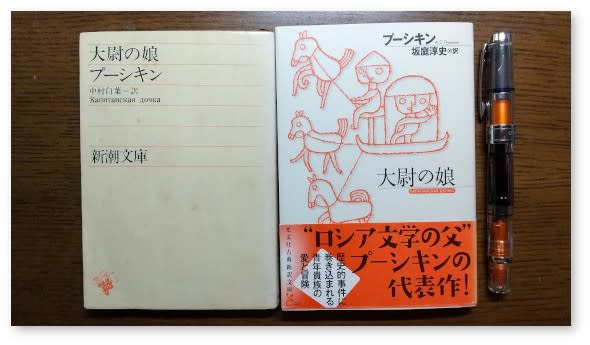 大尉の娘
プーシキン
中村白葉=訳
Капитанская дочка
新潮文庫
プーシキン
坂庭淳史 訳
大尉の娘
"ロシア文学の父"
プーシキンの
代表作!
歴史的事件に
巻き込まれる
青年貴族の
愛と冒険
光文社古典新訳文庫